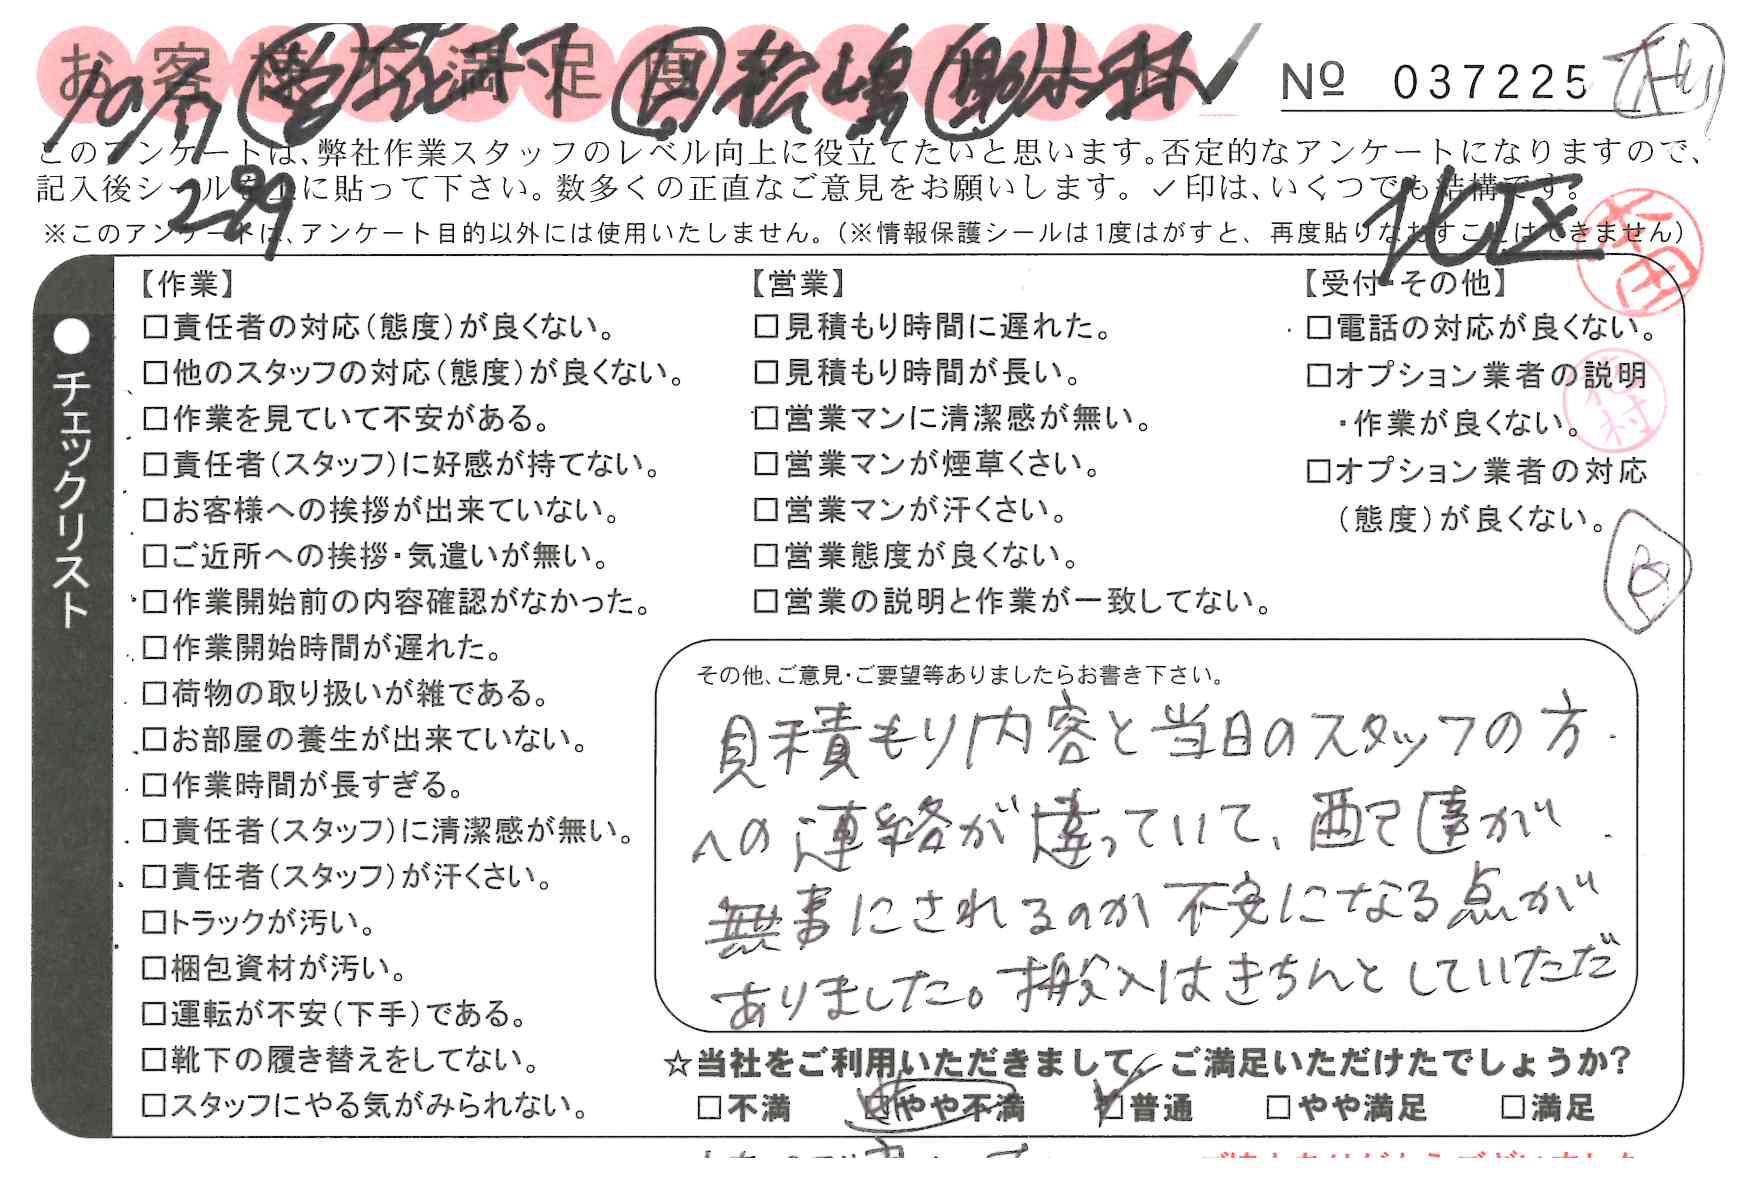 お客様不満足度アンケート
10/17 営 花村 責 松嶋 助 木林
No 037225
このアンケートは、弊社作業スタッフのレベル向上に役立てたいと思います。否定的なアンケートになりますので、
記入後シールを上に貼って下さい。数多くの正直なご意見をお願いします。✓印は、いくつでも結構です。
289 北区
※このアンケートは、アンケート目的以外には使用いたしません。(※情報保護シールは1度はがすと、再度貼りなおすことはできません)
●チェックリスト
【作業】
□責任者の対応(態度)が良くない。
□他のスタッフの対応(態度)が良くない。
□作業を見ていて不安がある。
□責任者(スタッフ)に好感が持てない。
□お客様への挨拶が出来ていない。
□ご近所への挨拶・気遣いが無い。
□作業開始前の内容確認がなかった。
□作業開始時間が遅れた。
□荷物の取り扱いが雑である。
□お部屋の養生が出来ていない。
□作業時間が長すぎる。
□責任者(スタッフ)に清潔感が無い。
□責任者(スタッフ)が汗くさい。
□トラックが汚い。
□梱包資材が汚い。
□運転が不安(下手)である。
□靴下の履き替えをしてない。
□スタッフにやる気がみられない。
【営業】
□見積もり時間に遅れた。
□見積もり時間が長い。
□営業マンに清潔感が無い。
□営業マンが煙草くさい。
□営業マンが汗くさい。
□営業態度が良くない。
□営業の説明と作業が一致してない。
【受付・その他】
□電話の対応が良くない。
□オプション業者の説明
・作業が良くない。
□オプション業者の対応
(態度)が良くない。
花村
その他、ご意見・ご要望等ありましたらお書き下さい。
見積もり内容と当日のスタッフの方
への連絡が違っていて、配達が
無事にされるのか不安になる点が
ありました。搬入はきちんとしていただ
☆当社をご利用いただきまして、ご満足いただけたでしょうか?
□不満 □やや不満 □普通 □やや満足 □満足